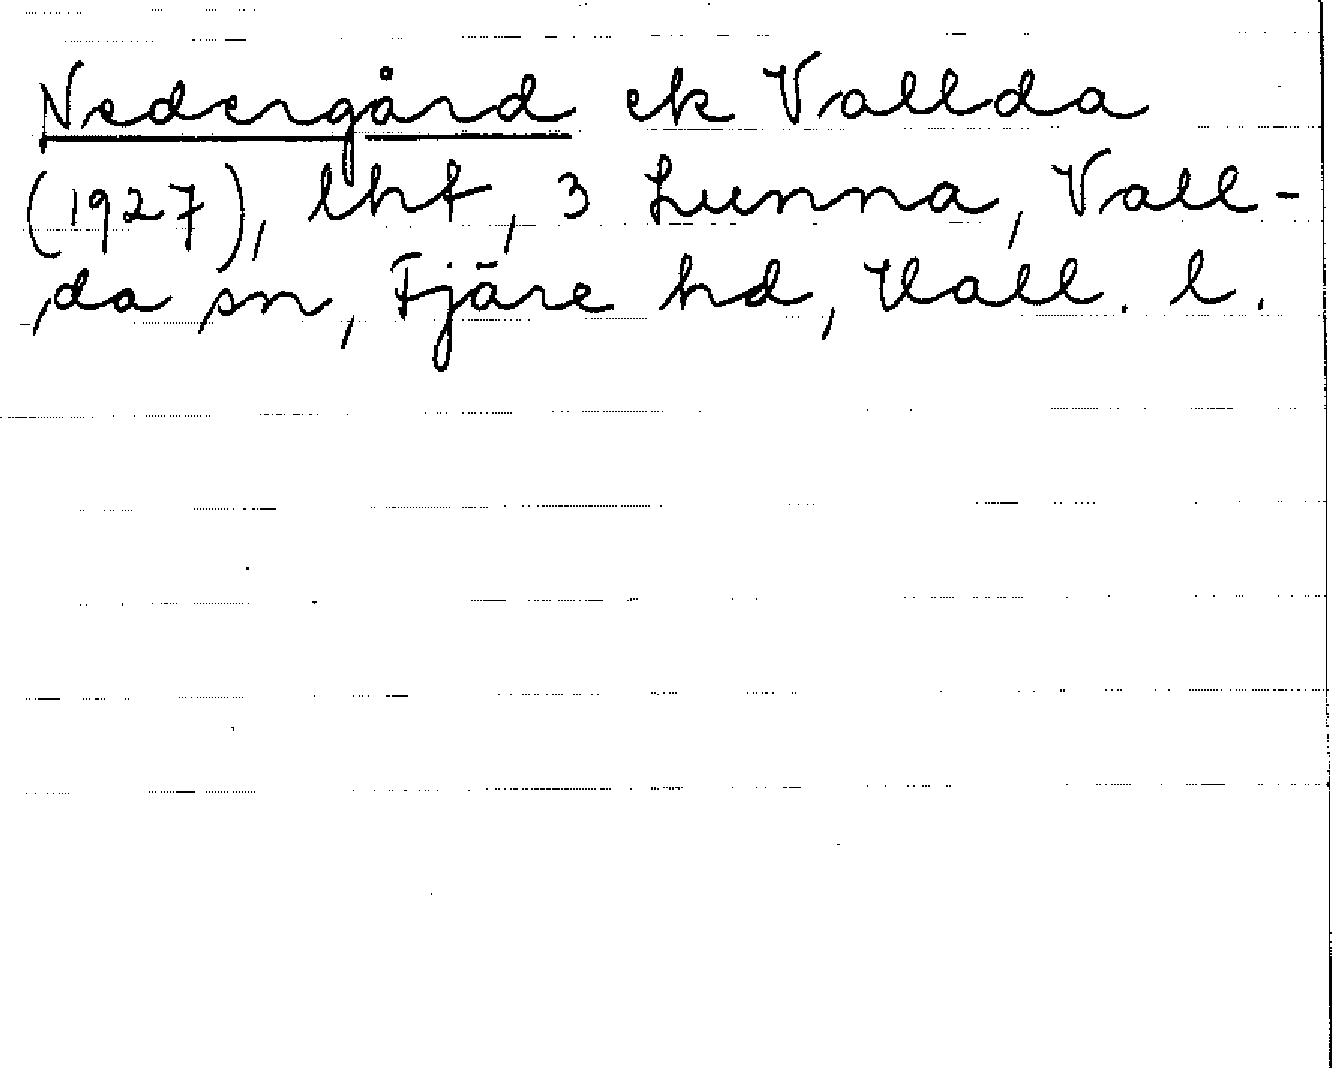 Nedergård ek Vallda
(1927), lht, 3 Lunna, Vall-
da sn, Fjäre hd, Hall. l.